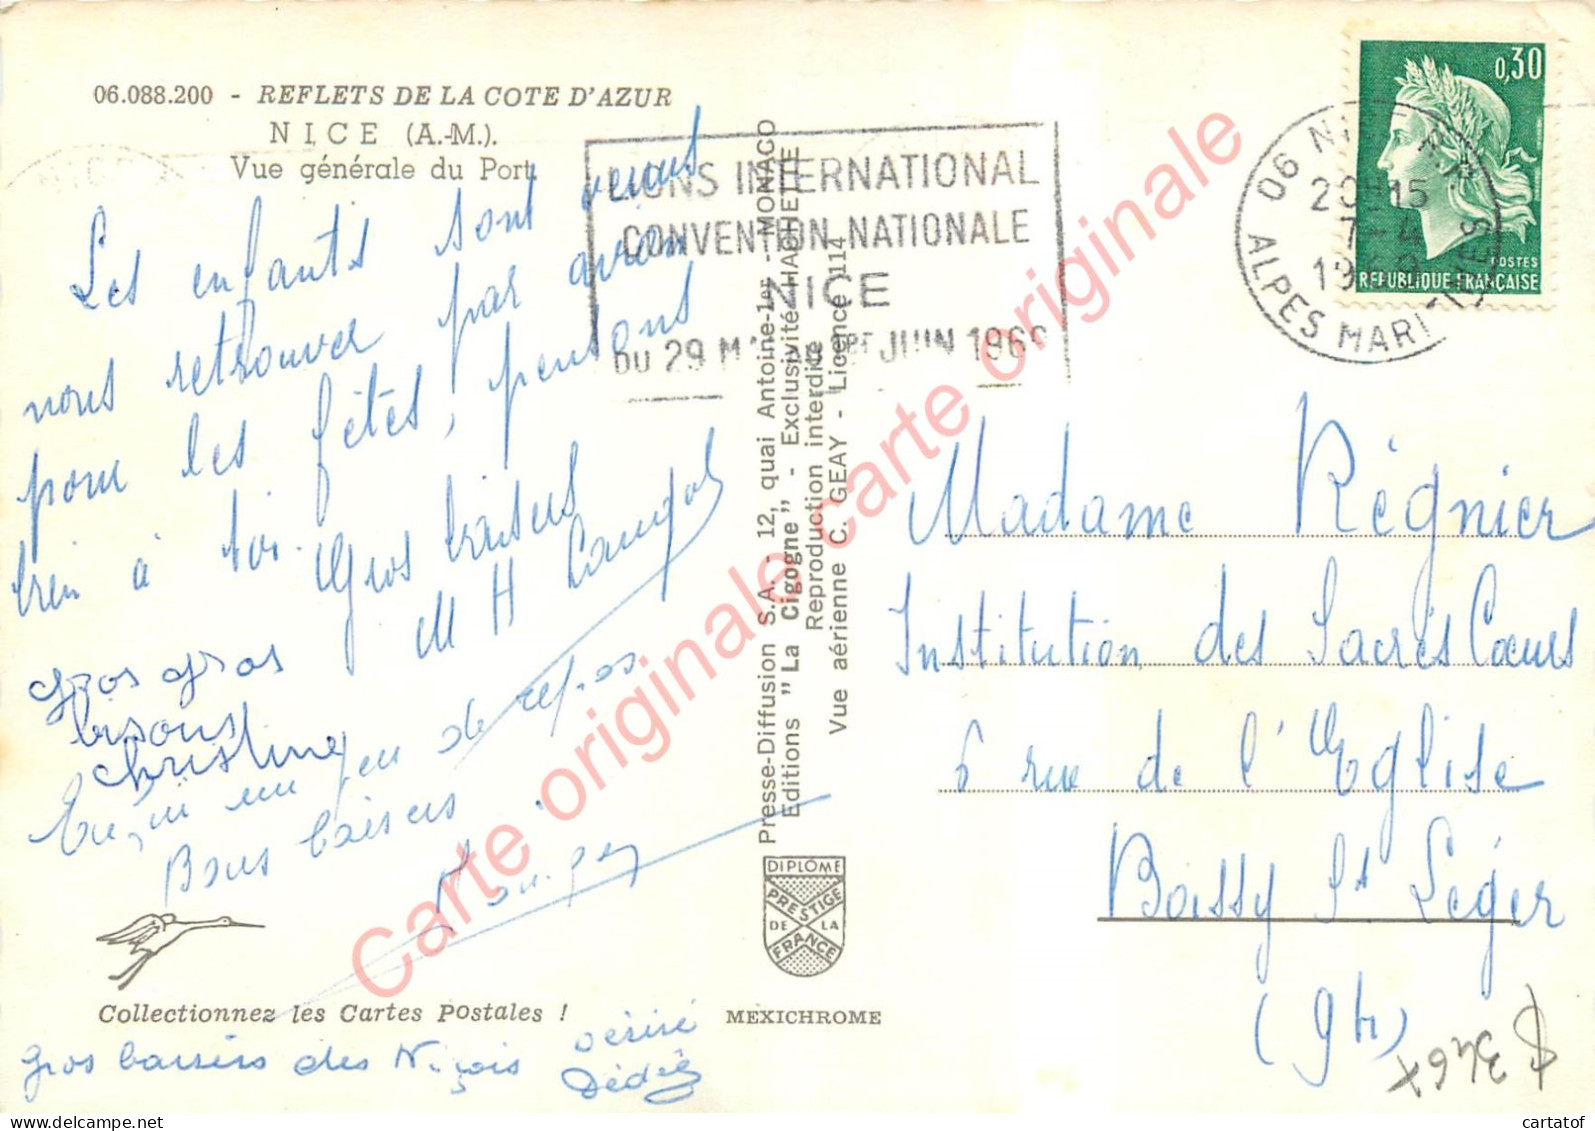 06.088.200 - REFLETS DE LA COTE D'AZUR
NICE (A.-M.).
Vue générale du Port
Les enfants sont venus
nous retrouver par avion
pour les fêtes, pensons
bien à toi. Gros baisers
M H
gros gros
bisous
Christine
un peu de repos
Bons baisers.
Collectionnez les Cartes Postales !
Gros baisers des Niçois Désiré
Dédée
LIONS INTERNATIONAL
CONVENTION NATIONALE
NICE
DU 29 JUIN 1969
Presse-Diffusion S.A. - 12, quai Antoine-1er - MONACO
Editions "La Cigogne" - Exclusivité HACHETTE
Reproduction interdite
Vue aérienne C. GEAY - Licence 114
DIPLÔME
PRESTIGE
DE LA
FRANCE
MEXICHROME
0,30
POSTES
REPUBLIQUE FRANÇAISE
06 NICE
20H15
7-4
1969
ALPES MARITIMES
Madame Régnier
Institution des Sacrés Coeurs
6 rue de l'Eglise
Boissy St Léger
(94)
Carte originale carte originale
cartatof